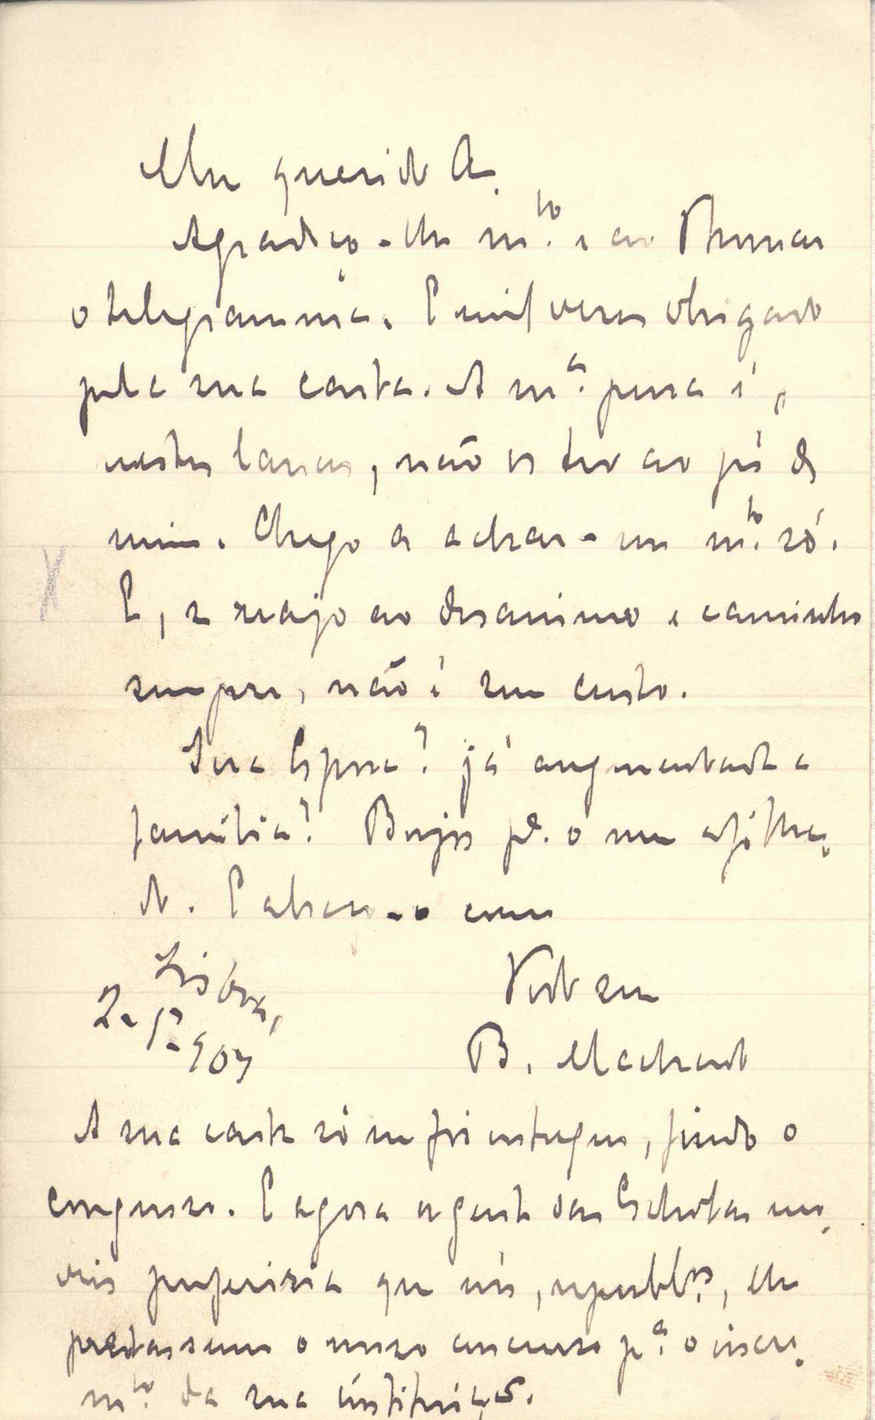 Meu querido A.
Agradeço-lhe m.to e ao Thomaz
o telegramma. E mil vezes obrigado
pela sua carta. A m.a pena é,
nestes lances, não os ter ao pé de
mim. Chego a achar-me m.to só.
E, se reajo ao desanimo e caminho
sempre, não é sem custo.
Sua Esposa? já augmentada a
familia? Beijos p.a o meu afilha-
do. E abraça-o com
Lisboa,
2-5-907
Todo seu
B. Machado
A sua carta só me foi entregue, findo o
congresso. E agora a gente das Escholas mo-
veis preferiria que nós, republ.os, lhe
prestassemos o nosso concurso p.a o cresci-
m.to da sua instituição.